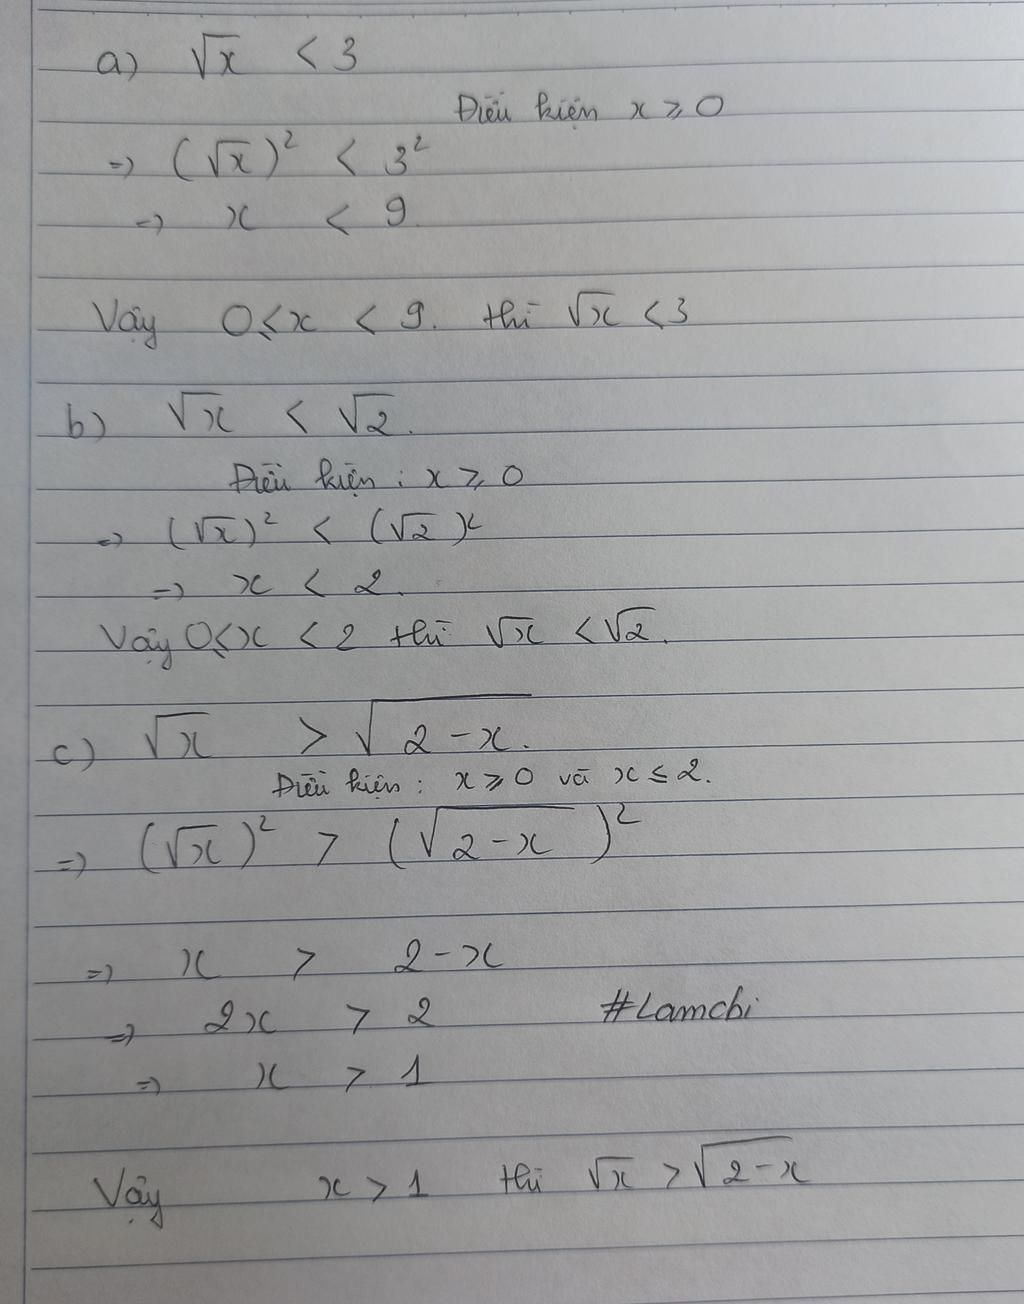 a) √x < 3
Điều kiện x ⩾ 0
=> (√x)² < 3²
=> x < 9.
Vậy 0 ⩽ x < 9. thì √x < 3
b) √x < √2.
Điều kiện : x ⩾ 0
=> (√x)² < (√2)²
=> x < 2.
Vậy 0 ⩽ x < 2 thì √x < √2.
c) √x > √(2-x).
Điều kiện : x ⩾ 0 và x ≤ 2.
=> (√x)² > (√(2-x))²
=> x > 2-x
=> 2x > 2 #Lamchi
=> x > 1
Vậy x > 1 thì √x > √(2-x)